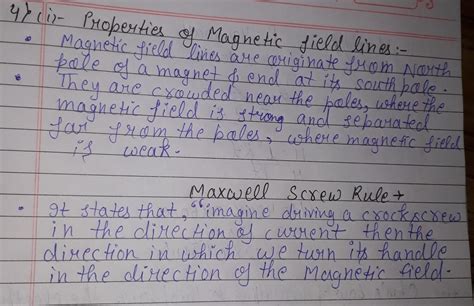 4) (i)- Properties of Magnetic field lines:-
• Magnetic field lines are originate from North
pole of a magnet & end at its south pole.
• They are crowded near the poles, where the
magnetic field is strong and separated
far from the poles, where magnetic field
is weak.
Maxwell Screw Rule →
• It states that, "imagine driving a crockscrew
in the direction of current then the
direction in which we turn its handle
in the direction of the Magnetic field.